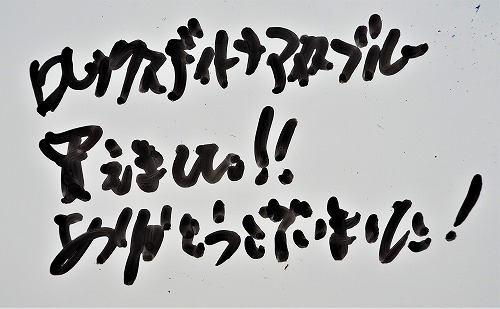 ロレックスデイトナアイスブルー
買えました!!
ありがとうございました!